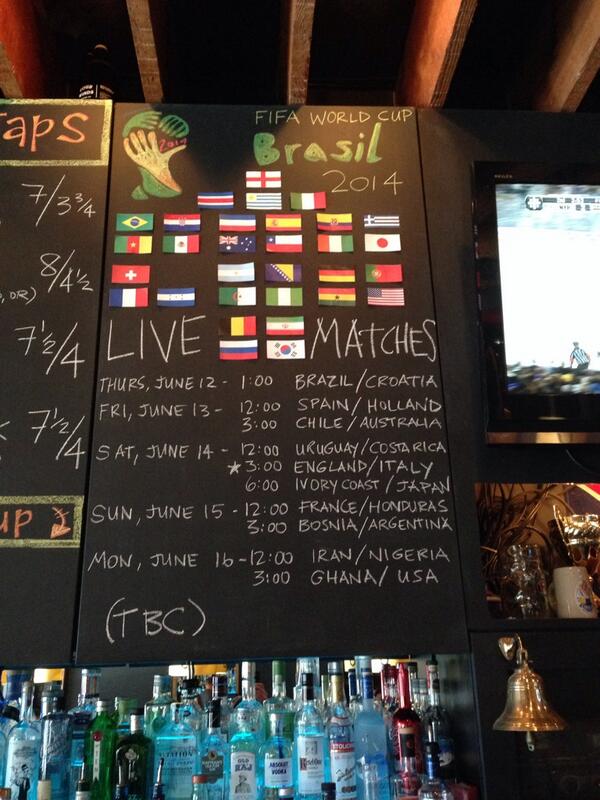 TAPS
7/3 3/4
8/4 1/2
7 1/2/4
7 1/2/4
FIFA WORLD CUP
Brasil
2014
2014
LIVE MATCHES
THURS, JUNE 12 - 1:00 BRAZIL/CROATIA
FRI, JUNE 13 - 12:00 SPAIN/HOLLAND
3:00 CHILE/AUSTRALIA
SAT, JUNE 14 - 12:00 URUGUAY/COSTARICA
★3:00 ENGLAND/ITALY
6:00 IVORY COAST/JAPAN
SUN, JUNE 15 - 12:00 FRANCE/HONDURAS
3:00 BOSNIA/ARGENTINA
MON, JUNE 16 - 12:00 IRAN/NIGERIA
3:00 GHANA/USA
(TBC)
ABSOLUT
VODKA